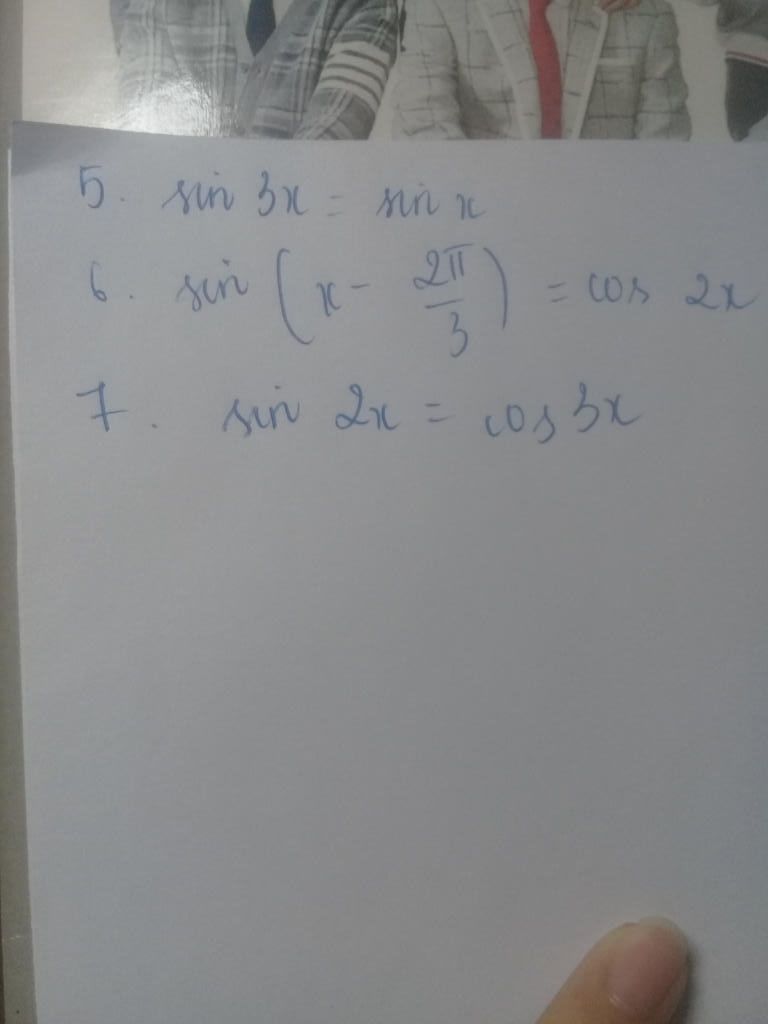 5. sin 3x = sin x
6. sin (x - 2π/3) = cos 2x
7. sin 2x = cos 3x